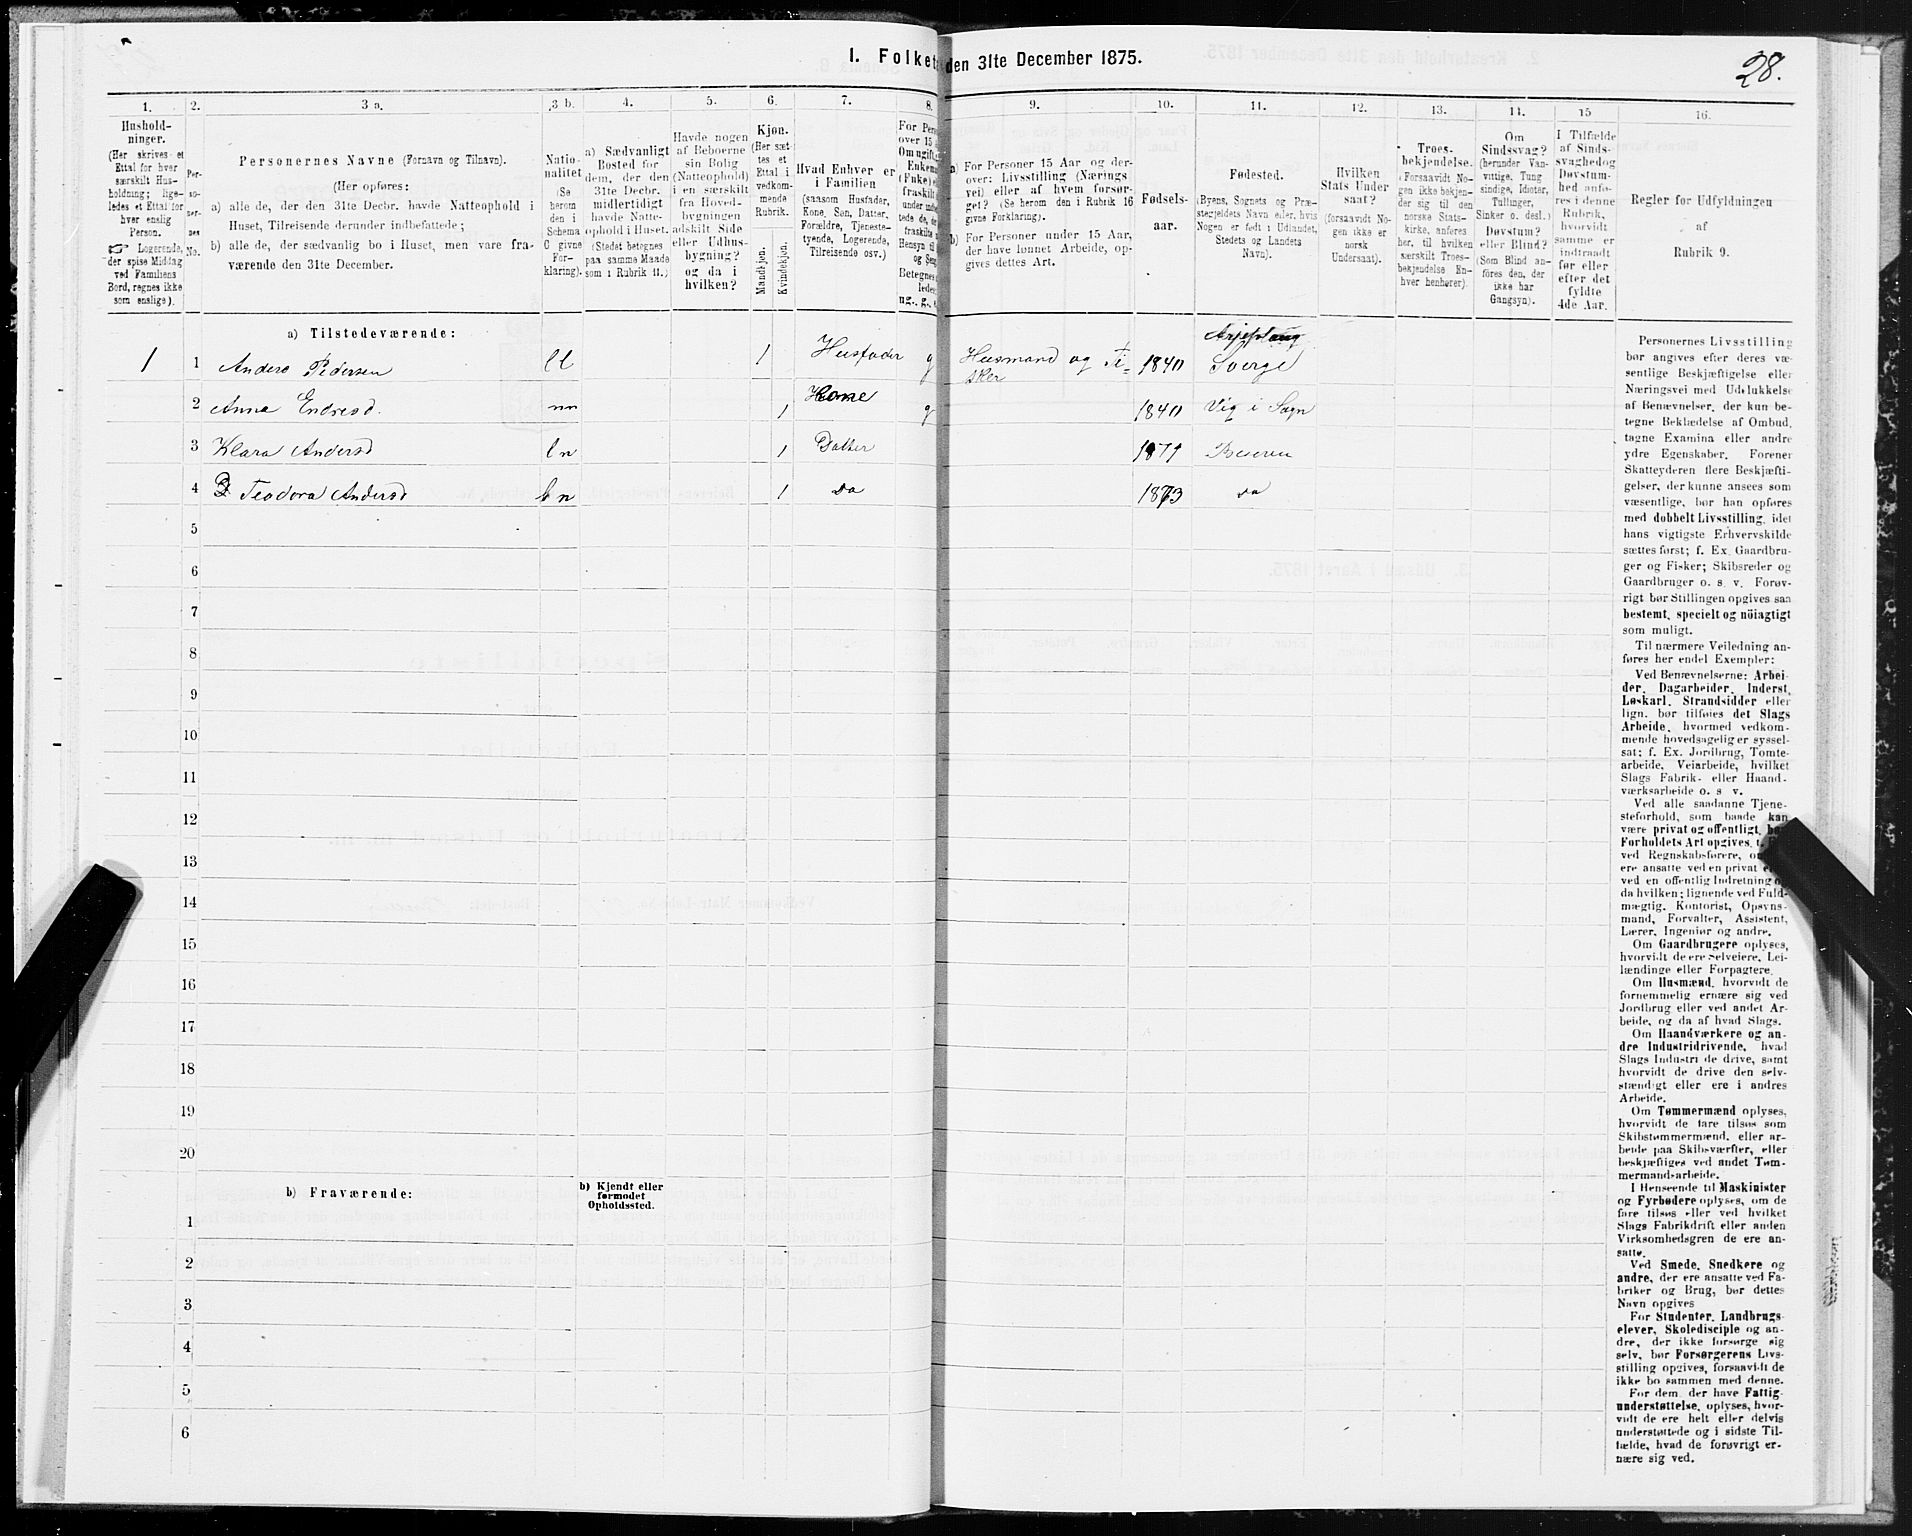 1. Folket den 31te December 1875.
28.
1. 2. 3 a. 3 b. 4. 5. 6. 7. 8. 9. 10. 11. 12. 13. 14. 15 16.
Hushold-
ninger.
(Her skrives et
Ettal for hver
særskilt Hus-
holdning; lige-
ledes et Ettal for
hver enslig
Person.
☞ Logerende,
der spise Middag
ved Familiens
Bord, regnes ikke
som enslige).
Per-
so-
ner-
nes
No.
Personernes Navne (Fornavn og Tilnavn).
(Her opføres:
a) alle de, der den 31te Decbr. havde Natteophold i
Huset, Tilreisende derunder indbefattede;
b) alle de, der sædvanlig bo i Huset, men vare fra-
værende den 31te December.
Natio-
nalitet
(Se
herom
den i
Schema
C givne
For-
klaring).
a) Sædvanligt
Bosted for
dem, der den
31te Decbr.
midlertidigt
havde Natte-
ophold i Huset.
(Stedet betegnes
paa samme Maade
som i Rubrik 11.)
Havde nogen
af Beboerne
sin Bolig
(Natteophold)
i en særskilt
fra Hoved-
bygningen
adskilt Side
eller Udhus-
bygning?
og da i
hvilken?
Kjøn.
(Her sæt-
tes et
Ettal i
vedkom-
mende
Rubrik.
Mandkjøn.
Kvindekjøn.
Hvad Enhver er
i Familien
(saasom Husfader,
Kone, Søn, Datter,
Forældre, Tjeneste-
tyende, Logerende,
Tilreisende osv.)
For Pers
over 15
Om ugift,
Enkem
(Enke) e
fraskilt
under
tede de,
fraskilte
Hensyn til
og Seng
Betegnes
ledes
ug., g.,
a) For Personer 15 Aar og der-
over: Livsstilling (Nærings
vei) eller af hvem forsør-
get? (Se herom den i Rubrik 16
givne Forklaring).
b) For Personer under 15 Aar,
der have lønnet Arbeide, op-
gives dettes Art.
Fødsels-
aar.
Fødested.
(Byens, Sognets og Præ-
stegjeldets Navn eller, hvis
Nogen er født i Udlandet,
Stedets og Landets
Navn).
Hvilken
Stats Under
saat?
(forsaavidt No-
gen ikke er
norsk
Undersaat).
Troes-
bekjendelse.
(Forsaavidt No-
gen ikke bekjen-
der sig til den
norske Stats-
kirke, anføres
her, til hvilken
særskilt Troes-
bekjendelse En-
hver henhører).
Om
Sindssvag?
(herunder Van-
vittige, Tung
sindige, Idioter,
Tullinger,
Sinker o. desl.)
Døvstum?
eller Blind?
(Som Blind an-
føres den, der
ikke har
Gangsyn).
I Tilfælde
af Sinds-
svaghed og
Døvstum-
hed anfø-
res i denne
Rubrik,
hvorvidt
samme er
indtraadt
før eller
efter det
fyldte
4de Aar.
Regler for Udfyldningen
af
Rubrik 9.
a) Tilstedeværende:
Arjeplaug
1 1 Anders Pedersen 1 Husfader g Husmand og Fi= 1840 Sverge
sker
2 Anna Endresd. nn 1 Kone g 1840 Vig i Sogn
3 Klara Andersd ln 1 Datter 1871 Beieren
4 Teodora Andersd bn 1 Do 1873 do
5
6
7
8
9
10
11
12
13
14
15
16
17
18
19
20
b) Fraværende:
b) Kjendt eller
formodet
Opholdssted.
1
2
3
4
5
6
Personernes Livsstilling
bør angives efter deres væ-
sentlige Beskjæftigelse eller
Næringsvei med Udelukkelse
af Benævnelser, der kun be-
tegne Beklædelse af Ombud,
tagne Examina eller andre
ydre Egenskaber. Forener
Skatteyderen flere Beskjæfti-
gelser, der kunne ansees som
væsentlige, bør han opføres
med dobbelt Livsstilling, idet
hans vigtigste Erhvervskilde
sættes først; f. Ex. Gaardbru-
ger og Fisker; Skibsreder og
Gaardbruger o. s. v. Forøv-
rigt bør Stillingen opgives saa
bestemt, specielt og nöiagtigt
som muligt.
Til nærmere Veiledning an-
føres her endel Exempler:
Ved Benævnelserne: Arbei-
der, Dagarbeider, Inderst,
Løskarl, Strandsidder eller
lign. bør tilføies det Slags
Arbeide, hvormed vedkom-
mende hovedsagelig er syssel-
sat; f. Ex. Jordbrug, Tomte-
arbeide, Veiarbeide, hvilket
Slags Fabrik- eller Haand-
værksarbeide o. s v.
Ved alle saadanne Tjene-
steforhold, som baade kan
være privat og offentligt, bør
Forholdets Art opgives,
ved Regnskabsførere,
ere ansatte ved en privat
ved en offentlig Indretning
da hvilken; lignende ved Fuld-
mægtig, Kontorist, Opsyns-
mand, Forvalter, Assistent,
Lærer, Ingeniør og andre.
Om Gaardbrugere oplyses,
hvorvidt de ere Selveiere, Lei-
lændinge eller Forpagtere.
Om Husmænd, hvorvidt de
fornemmelig ernære sig ved
Jordbrug eller ved andet Ar-
beide, og da af hvad Slags.
Om Haandværkere og an-
dre Industridrivende, hvad
Slags Industri de drive, samt
hvorvidt de drive den selv-
stændigt eller ere i andres
Arbeide.
Om Tømmermænd oplyses,
hvorvidt de fare tilsøs som
Skibstømmermænd, eller ar-
beide paa Skibsværfter, eller
beskjæftiges ved andet Tøm-
mermandsarbeide.
I Henseende til Maskinister
og Fyrbødere oplyses, om de
fare tilsøs eller ved hvilket
Slags Fabrikdrift eller anden
Virksomhedsgren de ere an-
satte.
Ved Smede, Snedkere og
andre, der ere ansatte ved Fa-
briker og Brug, bør dettes
Navn opgives
For Studenter, Landbrugs-
elever, Skoledisciple og an-
dre, der ikke forsørge sig
selv, bør Forsørgerens Livs-
stilling opgives, forsaavidt de
ikke bo sammen med denne.
For dem, der have Fattig-
understøttelse, oplyses, hvor-
vidt de ere helt eller delvis
understøttede og i sidste Til-
fælde, hvad de forøvrigt er-
nære sig ved.